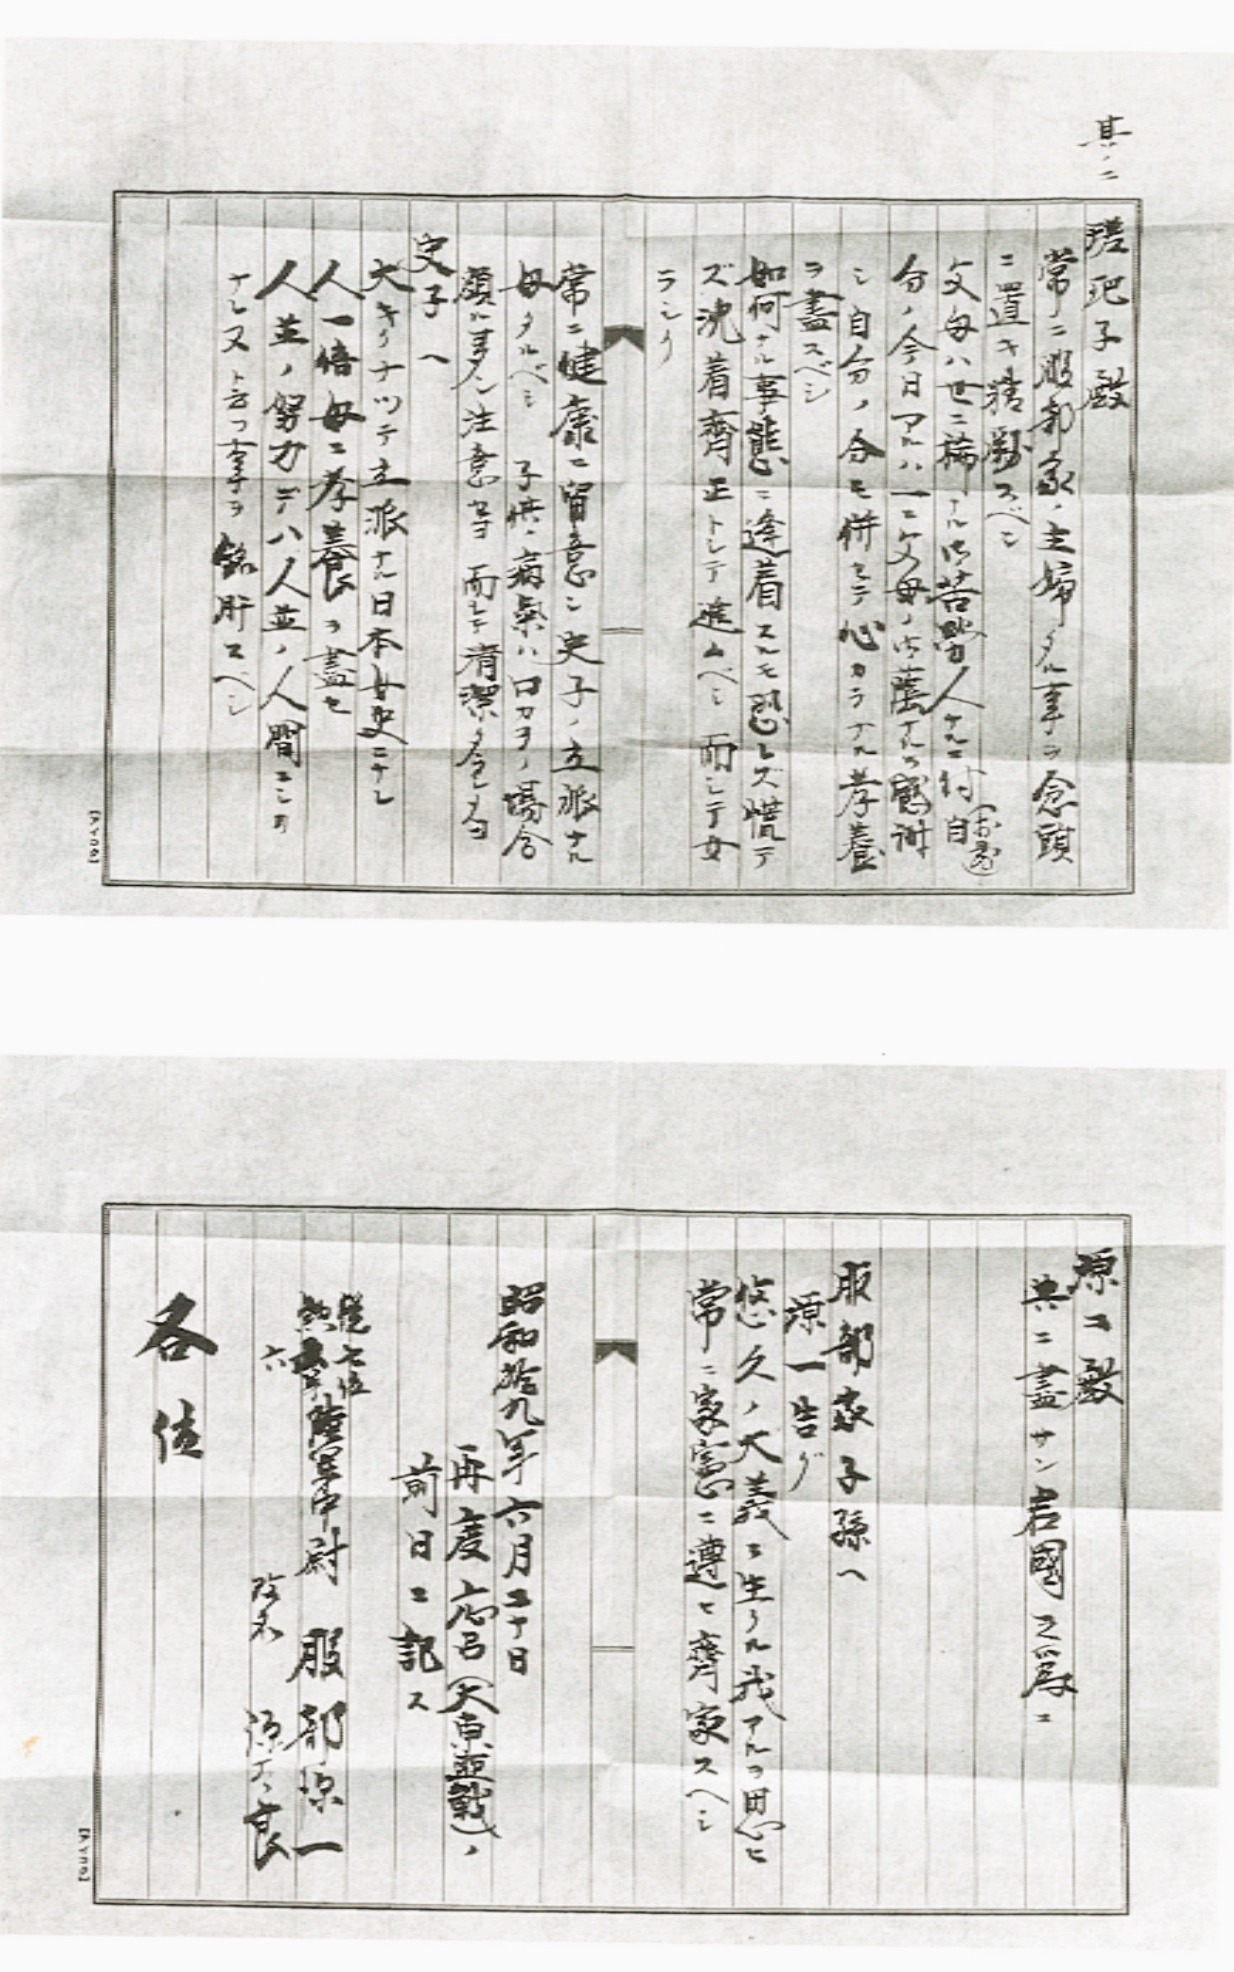 其ノ二
瑳玘子殿
常ニ服部家ノ主婦タル事ヲ念頭
ニ置キ精勵スベシ
父母ハ世ニ稀ナル御苦勞人ナルニ付自
分ノ今日アルハ一ニ父母ノ御蔭ナルヲ感謝
シ自分ノ分モ併セテ心カラナル孝養
ヲ盡スベシ
如何ナル事態ニ逢着スルモ恐レズ慌テ
ズ沈着齊正トシテ進ムベシ 而シテ女
ラシク
常ニ健康ニ留意シ史子ノ立派ナル
母タルベシ 子供ノ病氣ハ口カラノ場合
頗ル多シ注意
史子へ
大キクナツテ立派ナル日本女史ニナレ
人一倍母ニ孝養ヲ盡セ
人並ノ努力デハ人並ノ人間ニシカ
ナレヌト云フ事ヲ銘肝スベシ
源二殿
共ニ盡サン君國之爲ニ
服部家子孫へ
源一告グ
悠久ノ大義ニ生クル我アルヲ思ヒ
常ニ家憲ニ遵ヒ齊家スヘシ
昭和拾九年六月二十日
再度応召(大東亜戰)ノ
前日ニ記ス
從七位
陸軍中尉 服部源一
六
改名
各位